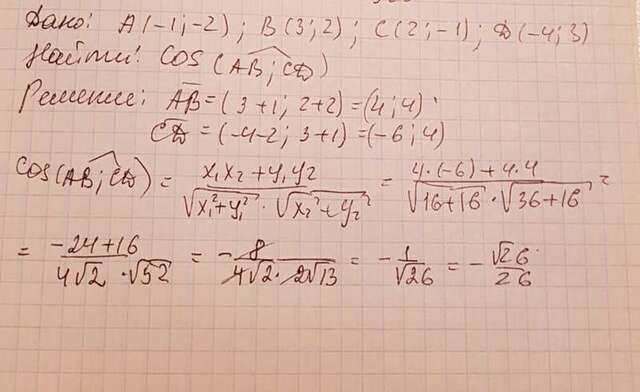 Дано: A(-1;-2); B(3;2); C(2;-1); D(-4;3)
Найти: cos(AB;CD)
Решение: AB=(3+1; 2+2)=(4;4)
CD=(-4-2; 3+1)=(-6;4)
cos(AB;CD) = x₁x₂+y₁y₂ / √x₁²+y₁² · √x₂²+y₂² = 4·(-6)+4·4 / √16+16 · √36+16 =
= -24+16 / 4√2 · √52 = - 8 / 4√2 · 2√13 = - 1/√26 = - √26/26